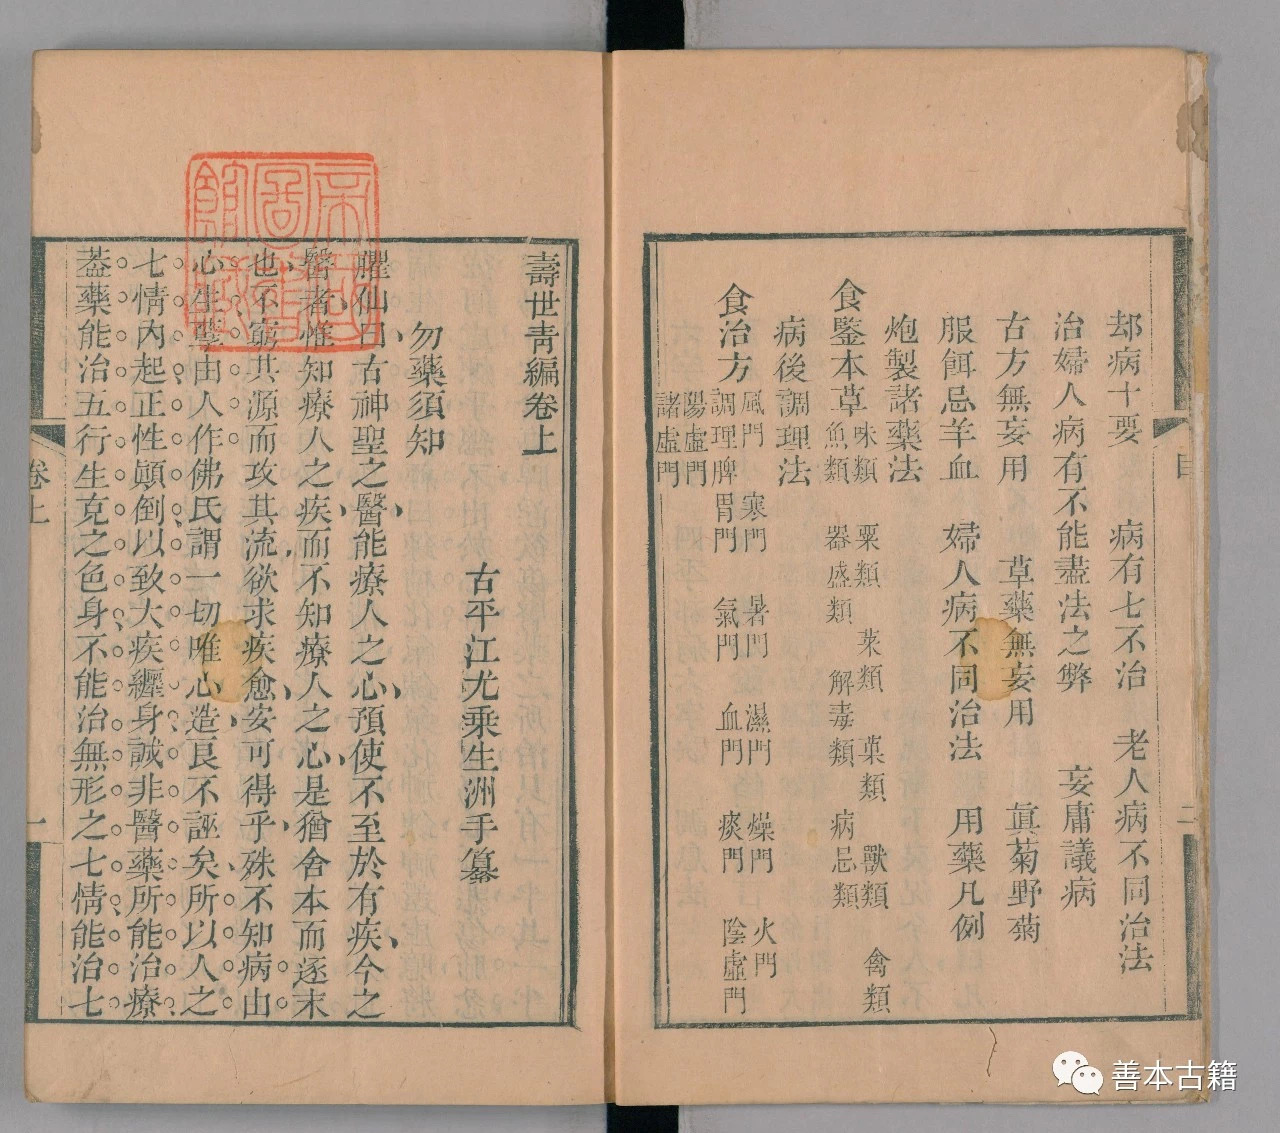 却病十要　病有七不治　老人病不同治法
治婦人病有不能盡法之弊　妄庸議病
古方無妄用　草藥無妄用　眞菊野菊
服餌忌羊血　婦人病不同治法　用藥凡例
炮製諸藥法
食鑒本草
味類　粟類　菜類　菓類　獸類　禽類
魚類　器盛類　解毒類　病忌類
病後調理法
食治方
風門　寒門　暑門　濕門　燥門　火門
調理脾胃門　氣門　血門　痰門　陰虛門
陽虛門
諸虛門
目
二
壽世青編卷上
古平江尤乘生洲手纂
勿藥須知
臞仙曰古神聖之醫能療人之心預使不至於有疾今之
醫者惟知療人之疾而不知療人之心是猶舍本而逐末
也不窮其源而攻其流欲求疾愈安可得乎殊不知病由
心生孽由人作佛氏謂一切唯心造良不誣矣所以人之
七情內起正性顚倒以致大疾纒身誠非醫藥所能治療
葢藥能治五行生克之色身不能治無形之七情能治七
卷上
一
帝國圖書館藏
善本古籍